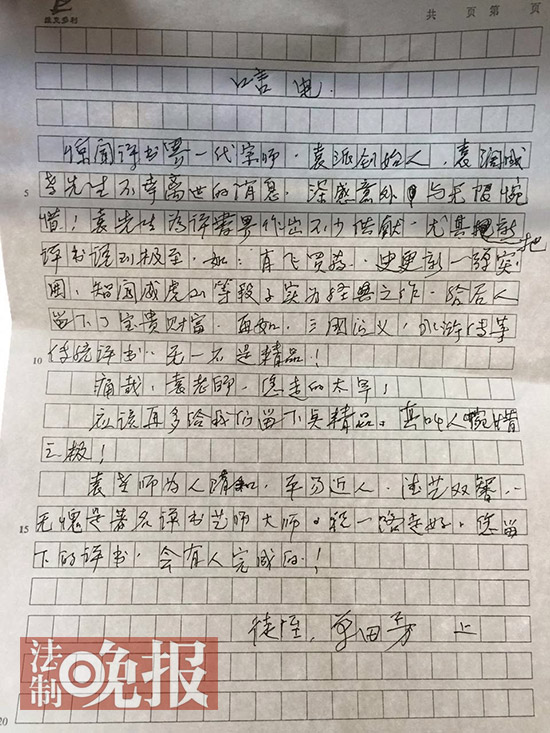 益见多利
共 页 第 页
唁电.
惊闻评书界一代宗师、袁派创始人、袁阔成
5
老先生不幸离世的消息,深感意外与无限惋
惜!袁先生为评书界作出不少供献,尤其把新
评书说到极至,如:肖飞买药、史更新一顿突
围、智闯威虎山等段子实为经典之作,给后人
留下了宝贵财富。再如,三国演义,水浒传等
10
传统评书,无一不是精品!
痛哉,袁老师,您走的太早!
应该再多给我们留下点精品。真叫人惋惜
之极!
袁老师为人随和,平易近人,德艺双馨,
15
无愧是著名评书艺师大师。祝一路走好,您留
下的评书,会有人完成的!
徒侄,单田芳 上
法制晚报
20